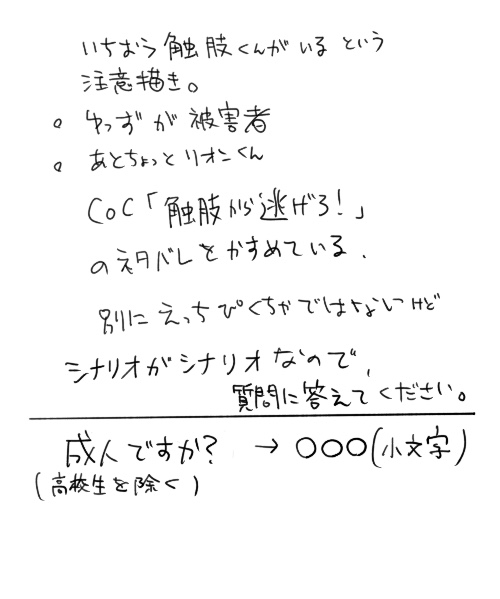 いちおう触肢くんがいるという
注意描き。
。ゆっずが被害者
。あとちょっとリオンくん
CoC「触肢から逃げろ！」
のネタバレをかすめている.
別にえっちぴくちゃではないけど
シナリオがシナリオなので,
質問に答えてください。
成人ですか? → ○○○(小文字)
(高校生を除く)